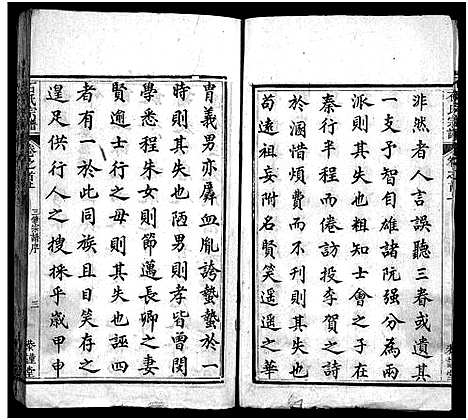 非然者人言誤聽三春或遺其
一支予智自雄諸阮强分為兩
派則其失也私知士會之子在
秦行半程而倦訪投李賀之詩
於溷惜煩而不情則其失也
苟遠祖妄附名賢笑遥遥之華
胄義男亦羼血胤誇蟄蟄於一
時則其失也陋男則孝皆曾閔
學悉程朱女則節邁長卿之妻
賢逾士行之母則其失也誣四
者有一於此同族且目笑存之
遑足供行人之搜採乎歲甲申
石氏宗譜
卷之首上
三修宗譜序
三